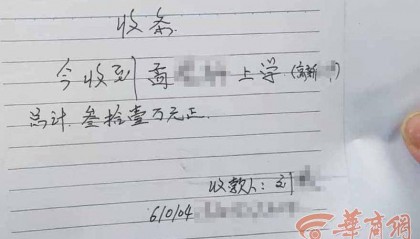 收条
今收到 孟 上学(高新
总计 叁拾壹万元正
收款人:刘
61010
华商网